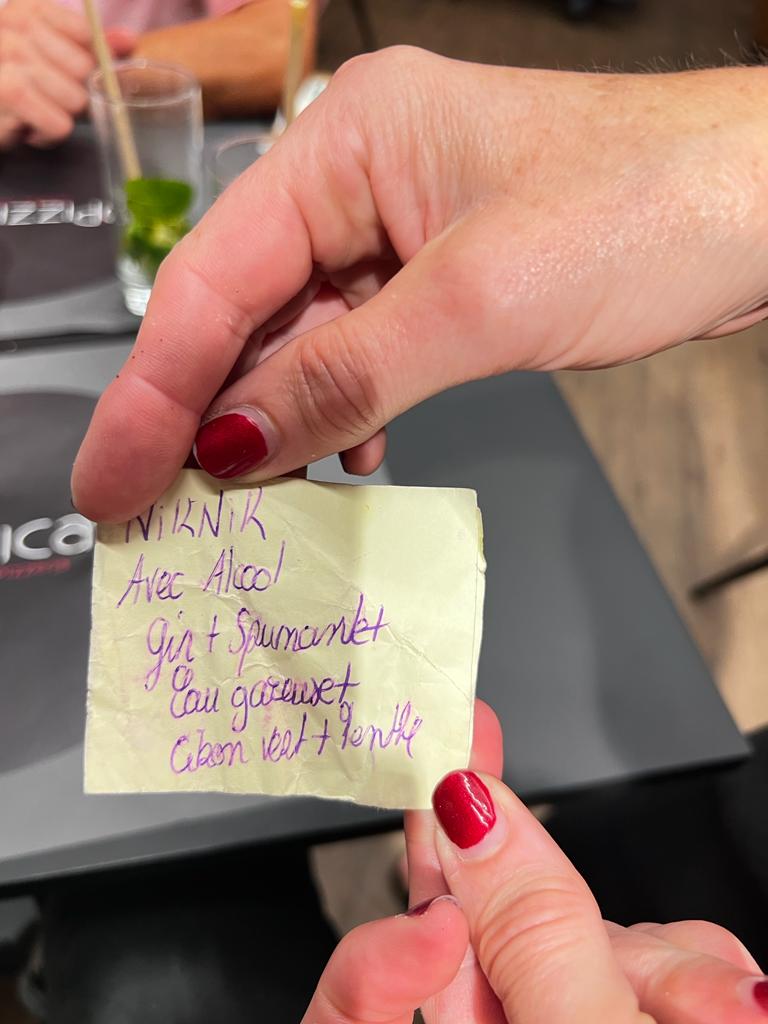 PIZZ
ica
Pizzeria
NiKNiK
Avec Alcool
Gin + Spumante+
Eau gazeuse+
Citron vert + Menthe